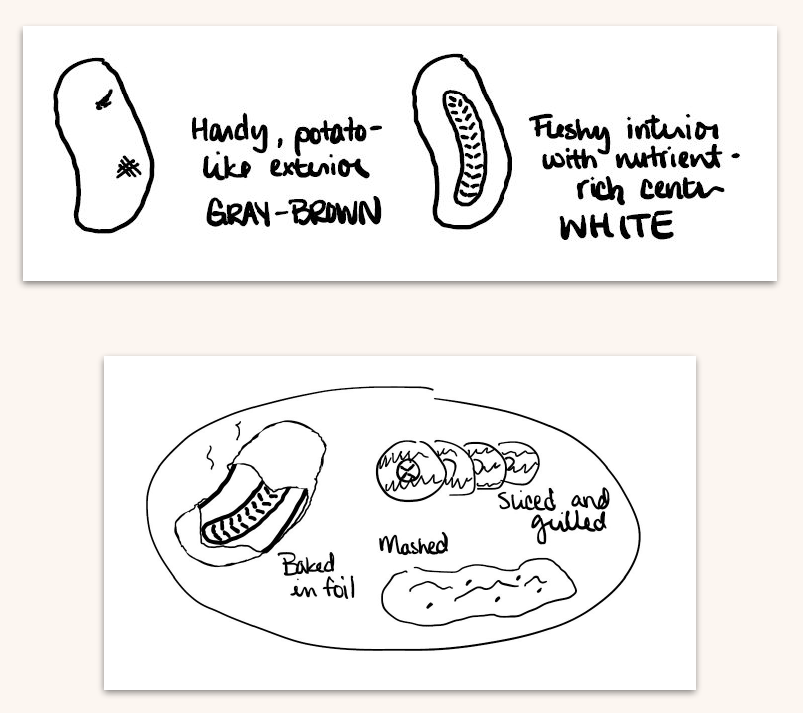 Hardy, potato-
like exterior
GRAY-BROWN
Fleshy interior
with nutrient-
rich center
WHITE
Sliced and
grilled
Mashed
Baked
in foil